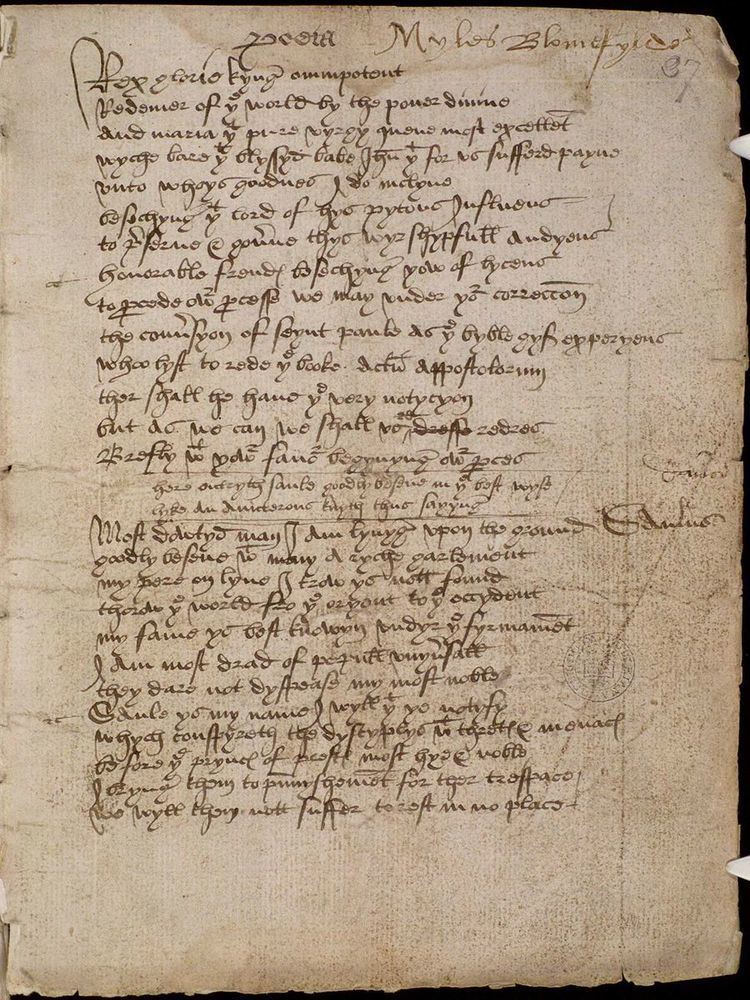 poeta Myles Blomefylde
37
Rex glorie kyng omnipotent
Redemer of yͤ world by the pouer diuine
And maria yͭ pure vyrgy quene most excellēt
wyche bare yͭ blyssyd babe Jhū yͭ for vs sufferd payne
vnto whoys goodnes I do inclyne
besechyng yͭ lord of hys pytous Influens
to p̄serue & gou̅ne thys wyrshypfull Audyens
honorable frendꝭ besechyng yow of lycens
to ꝓcede owͬ ꝓcesse we may vnder yoͬ correccōn
the conu̅syon of seynt paule as yͤ byble gyf experyens
whoo lyst to rede yͤ booke Actū Appostolorum
ther shall he haue yͤ very notycyon
but as we can we shall vs redres
Brefly wͭ yowͬ fauoͬ begynyng owͬ ꝓces
here entryth saule goodly besene in yͤ best wyse
lyke an aunterous knyth thus sayyng
Most dowtyd man I am lyuyng vpon the ground Saulus
goodly besene wͭ many a ryche garlement
my pere on lyue I trow ys nott found
thorow yͤ world fro yͤ oryent to yͤ occydent
my fame ys best knowyn vndyr yͤ fyrmamēt
I am most drad of pepull vnyu̅sall
they dare not dyspease my most noble
Saule ys my name I wyll yͭ ye notyfy
whych conspyreth the dyscyplys wͭ thretꝭ & menacꝭ
be fore yͤ pryncꝭ of prestꝭ most hye & noble
I bryng them to punyshemēt for ther trespace
we wyll them nott suffer to rest in no place